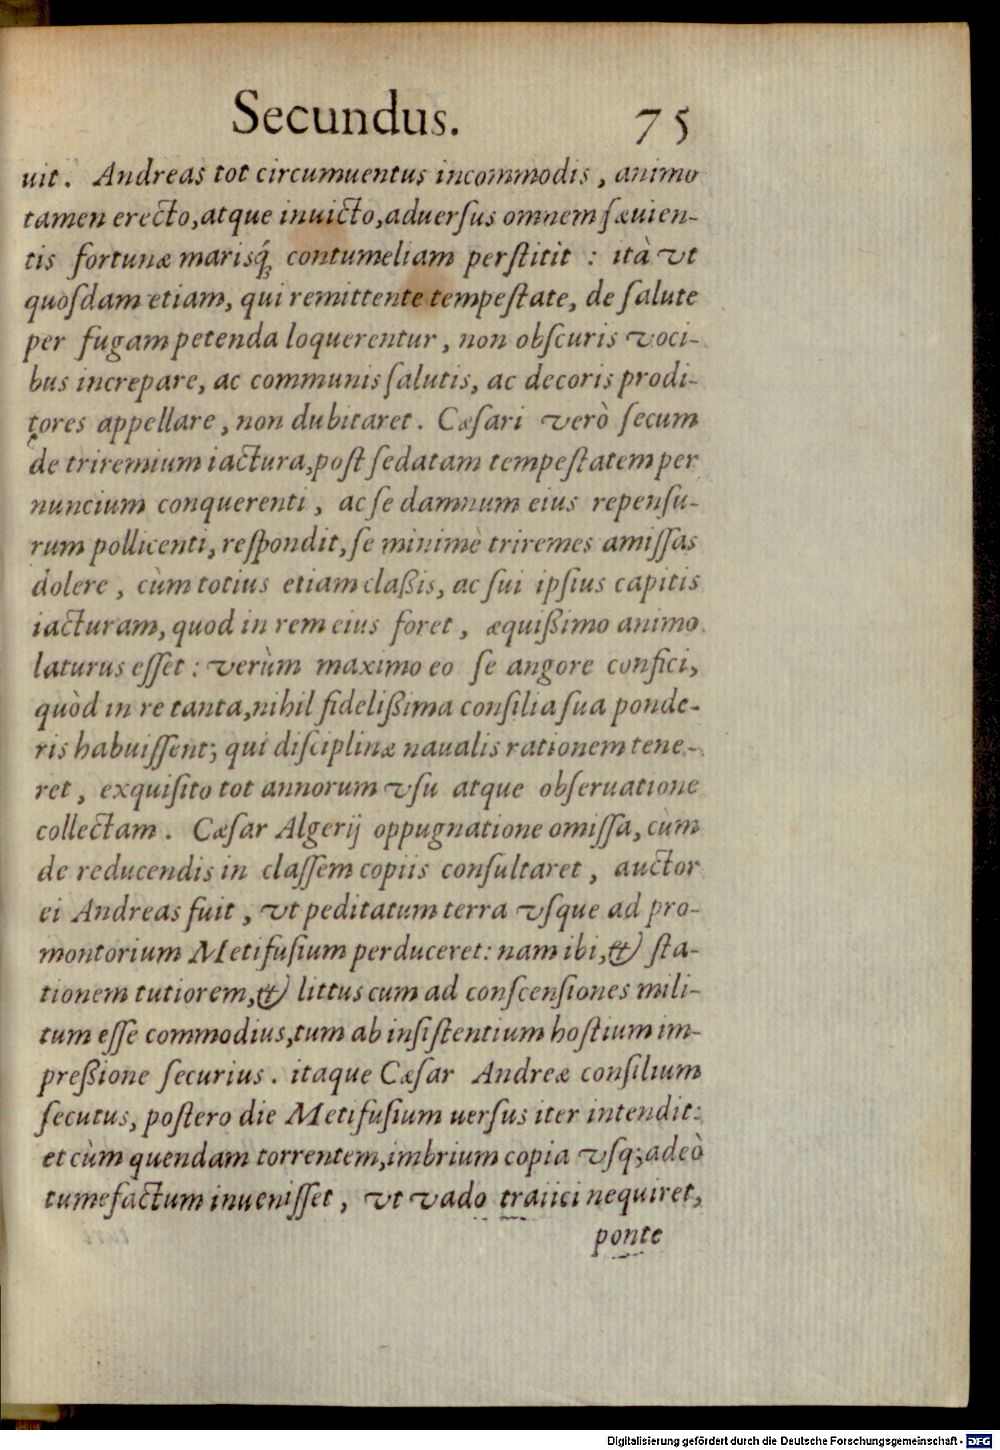 Secundus. 75
uit. Andreas tot circumuentus incommodis, animo
tamen erecto, atque inuicto, aduersus omnem sæuien-
tis fortunæ marisq́; contumeliam perstitit : ità vt
quosdam etiam, qui remittente tempestate, de salute
per fugam petenda loquerentur, non obscuris voci-
bus increpare, ac communis salutis, ac decoris prodi-
tores appellare, non dubitaret. Cæsari verò secum
de triremium iactura, post sedatam tempestatem per
nuncium conquerenti, ac se damnum eius repensu-
rum pollicenti, respondit, se minimè triremes amissas
dolere, cùm totius etiam claßis, ac sui ipsius capitis
iacturam, quod in rem eius foret, æquißimo animo
laturus esset : verùm maximo eo se angore confici,
quòd in re tanta, nihil fidelißima consilia sua ponde-
ris habuissent; qui disciplinæ naualis rationem tene-
ret, exquisito tot annorum vsu atque obseruatione
collectam. Cæsar Algerij oppugnatione omissa, cùm
de reducendis in classem copiis consultaret, auctor
ei Andreas fuit, vt peditatum terra vsque ad pro-
montorium Metifusium perduceret: nam ibi, & sta-
tionem tutiorem, & littus cum ad conscensiones mili-
tum esse commodius, tum ab insistentium hostium im-
preßione securius. itaque Cæsar Andreæ consilium
secutus, postero die Metifusium uersus iter intendit:
et cùm quendam torrentem, imbrium copia vsq; adeò
tumefactum inuenisset, vt vado traiici nequiret,
ponte
Digitalisierung gefördert durch die Deutsche Forschungsgemeinschaft - DFG